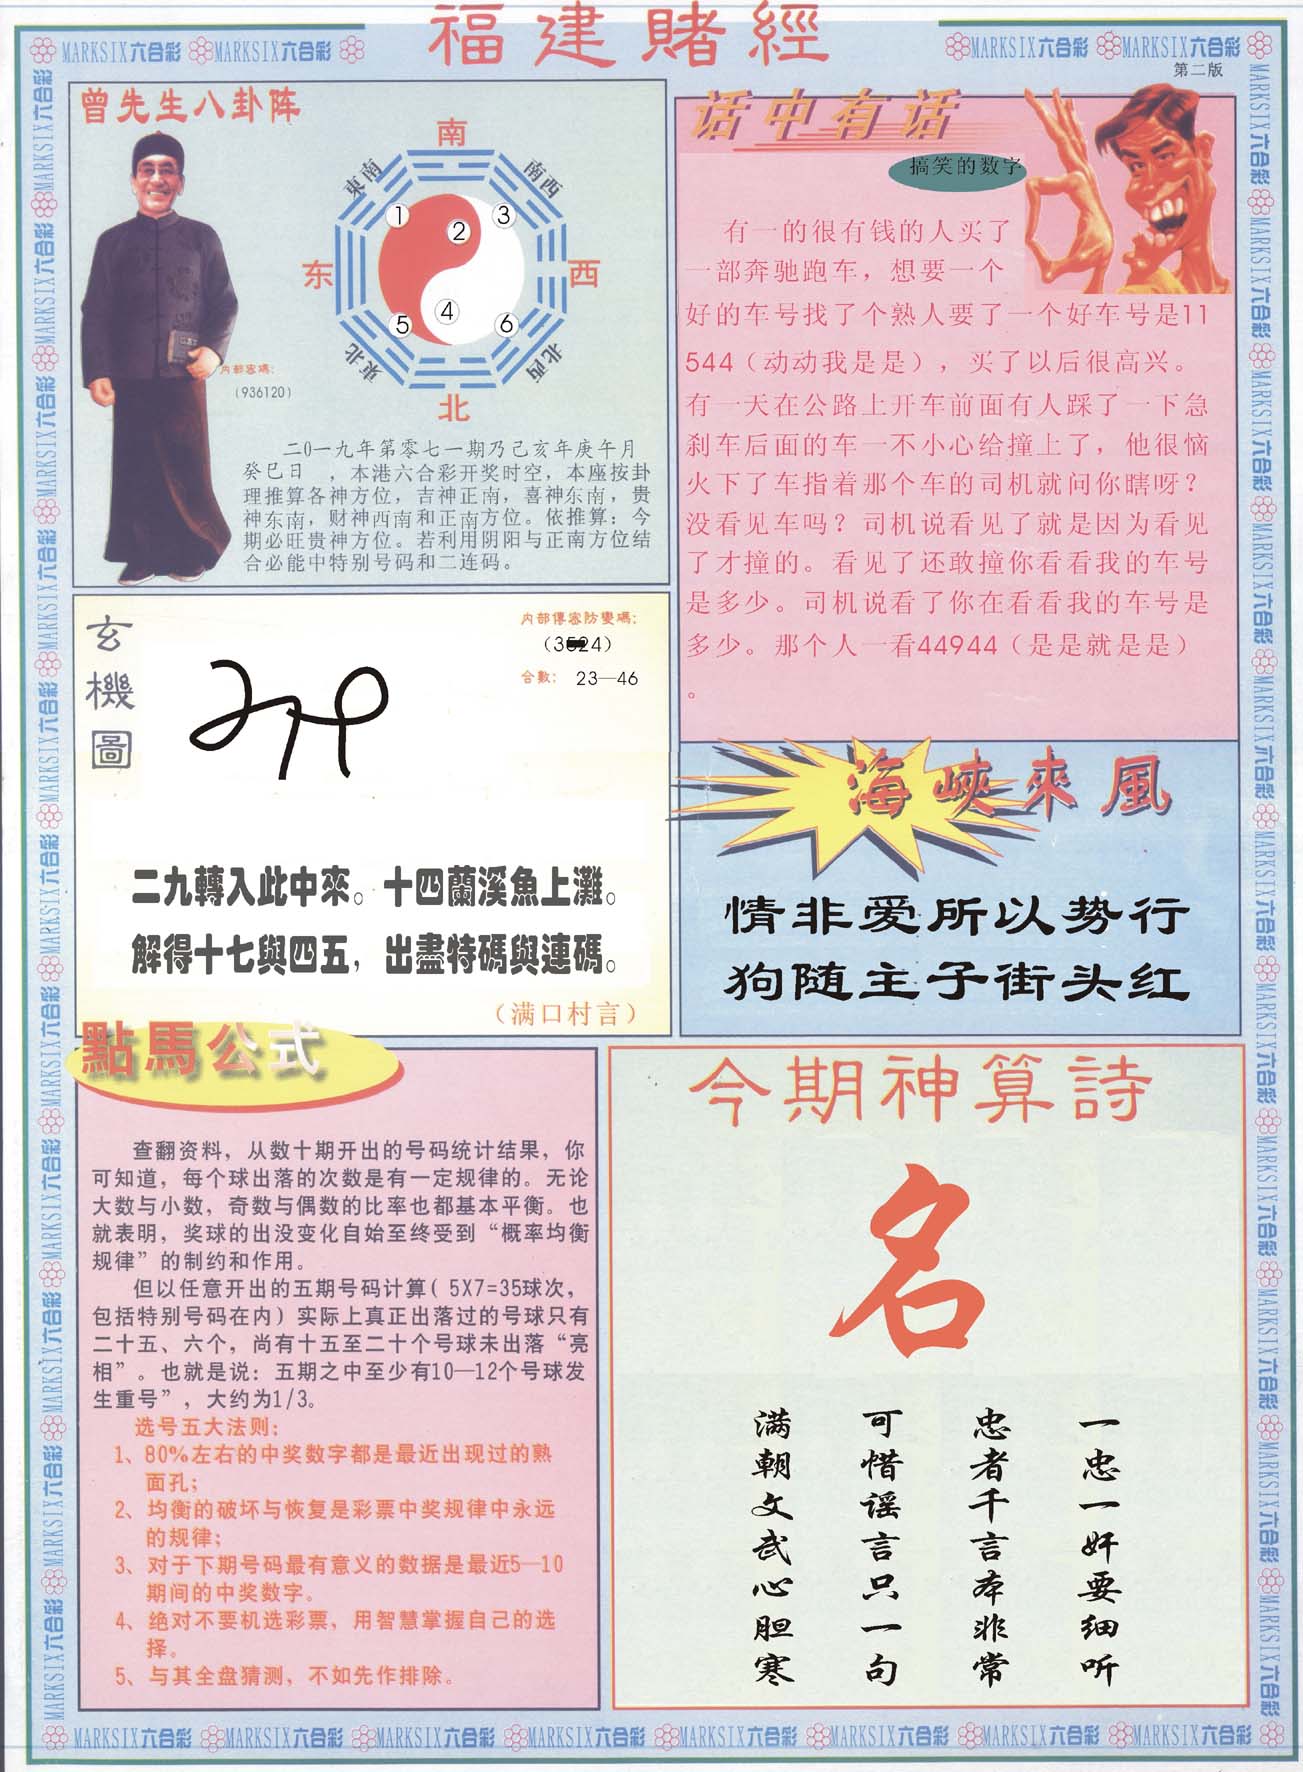 福建賭經
MARKSIX六合彩 MARKSIX六合彩
MARKSIX六合彩 MARKSIX六合彩
第二版
曾先生八卦阵
南
東南
南西
1
2
3
东
西
4
5
6
東北
北西
北
内部密碼:
(936120)
二0一九年第零七一期乃己亥年庚午月
癸巳日 ,本港六合彩开奖时空,本座按卦
理推算各神方位,吉神正南,喜神东南,贵
神东南,财神西南和正南方位。依推算:今
期必旺贵神方位。若利用阴阳与正南方位结
合必能中特别号码和二连码。
话中有话
搞笑的数字
有一的很有钱的人买了
一部奔驰跑车,想要一个
好的车号找了个熟人要了一个好车号是11
544(动动我是是),买了以后很高兴。
有一天在公路上开车前面有人踩了一下急
刹车后面的车一不小心给撞上了,他很恼
火下了车指着那个车的司机就问你瞎呀?
没看见车吗?司机说看见了就是因为看见
了才撞的。看见了还敢撞你看看我的车号
是多少。司机说看了你在看看我的车号是
多少。那个人一看44944(是是就是是)
。
玄機圖
内部傳密防變碼:
(3524)
合數: 23—46
二九轉入此中來。十四蘭溪魚上灘。
解得十七與四五,出盡特碼與連碼。
(满口村言)
海峽來風
情非爱所以势行
狗随主子街头红
點馬公式
查翻资料,从数十期开出的号码统计结果,你
可知道,每个球出落的次数是有一定规律的。无论
大数与小数,奇数与偶数的比率也都基本平衡。也
就表明,奖球的出没变化自始至终受到“概率均衡
规律”的制约和作用。
但以任意开出的五期号码计算(5X7=35球次,
包括特别号码在内)实际上真正出落过的号球只有
二十五、六个,尚有十五至二十个号球未出落“亮
相”。也就是说:五期之中至少有10—12个号球发
生重号”,大约为1/3。
选号五大法则:
1、80%左右的中奖数字都是最近出现过的熟
面孔;
2、均衡的破坏与恢复是彩票中奖规律中永远
的规律;
3、对于下期号码最有意义的数据是最近5—10
期间的中奖数字。
4、绝对不要机选彩票,用智慧掌握自己的选
择。
5、与其全盘猜测,不如先作排除。
今期神算詩
名
一忠一奸要细听
忠者千言本非常
可惜谣言只一句
满朝文武心胆寒
MARKSIX六合彩 MARKSIX六合彩 MARKSIX六合彩 MARKSIX六合彩 MARKSIX六合彩 MARKSIX六合彩 MARKSIX六合彩 MARKSIX六合彩